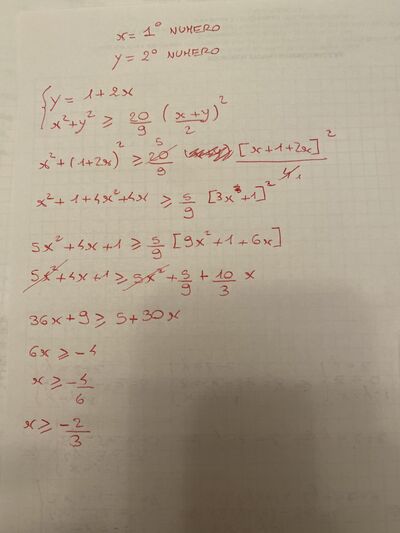 x = 1° NUMERO
y = 2° NUMERO
{ y = 1+2x
x²+y² ≥ 20/9 ( (x+y)/2 )²
x²+(1+2x)² ≥ 20/9 5 [x+1+2x]² / 4 1
x²+1+4x²+4x ≥ 5/9 [3x+1]²
5x²+4x+1 ≥ 5/9 [9x²+1+6x]
5x²+4x+1 ≥ 5x²+5/9+10/3 x
36x+9 ≥ 5+30x
6x ≥ -4
x ≥ -4/6
x ≥ -2/3